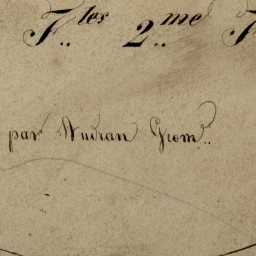 F.les 2.me F
par Audran Geom.